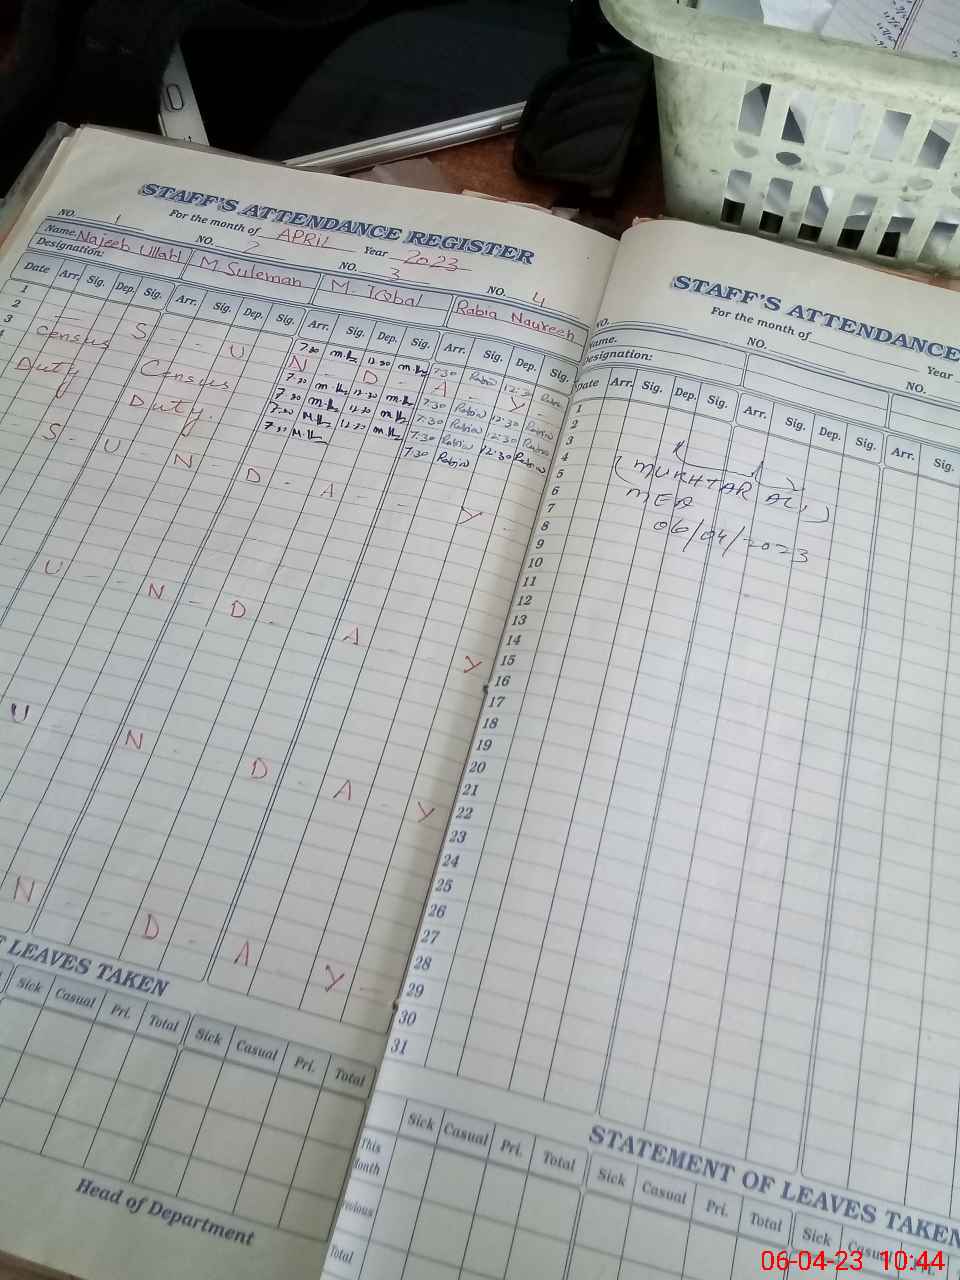 STAFF'S ATTENDANCE REGISTER
For the month of APRIL Year 2023
NO. 1 NO. 2 NO. 3 NO. 4
Name. Najeeb Ullah M Suleman M. Iqbal Rabia Naureen
Designation:
Date Arr. Sig. Dep. Sig. Arr. Sig. Dep. Sig. Arr. Sig. Dep. Sig. Arr. Sig. Dep. Sig.
1 7:30 12:30 7:30 Rabia 12:30
2 S - U N - D - A - Y -
3 Census Census 7:30 12:30 7:30 Rabia 12:30 Rabia
4 Duty Duty. 7:30 12:30 7:30 Rabia 12:30 Rabia
7:30 12:30 7:30 Rabia 12:30 Rabia
7:30 7:30 Rabia
S - U - N - D - A - Y -
U - N - D - A - Y
U - N - D - A - Y
N - D - A - Y -
F LEAVES TAKEN
Sick Casual Pri. Total Sick Casual Pri. Total
Head of Department
STAFF'S ATTENDANCE
For the month of Year
NO. NO. NO.
Name.
Designation:
Date Arr. Sig. Dep. Sig. Arr. Sig. Dep. Sig. Arr. Sig.
1
2
3
4
5
6
7
8
9
10
11
12
13
14
15
16
17
18
19
20
21
22
23
24
25
26
27
28
29
30
31
(MUKHTAR ALI)
MEA
06/04/2023
STATEMENT OF LEAVES TAKEN
Sick Casual Pri. Total Sick Casual Pri. Total Sick Casual Pri.
This
Month
Previous
Total
06-04-23 10:44